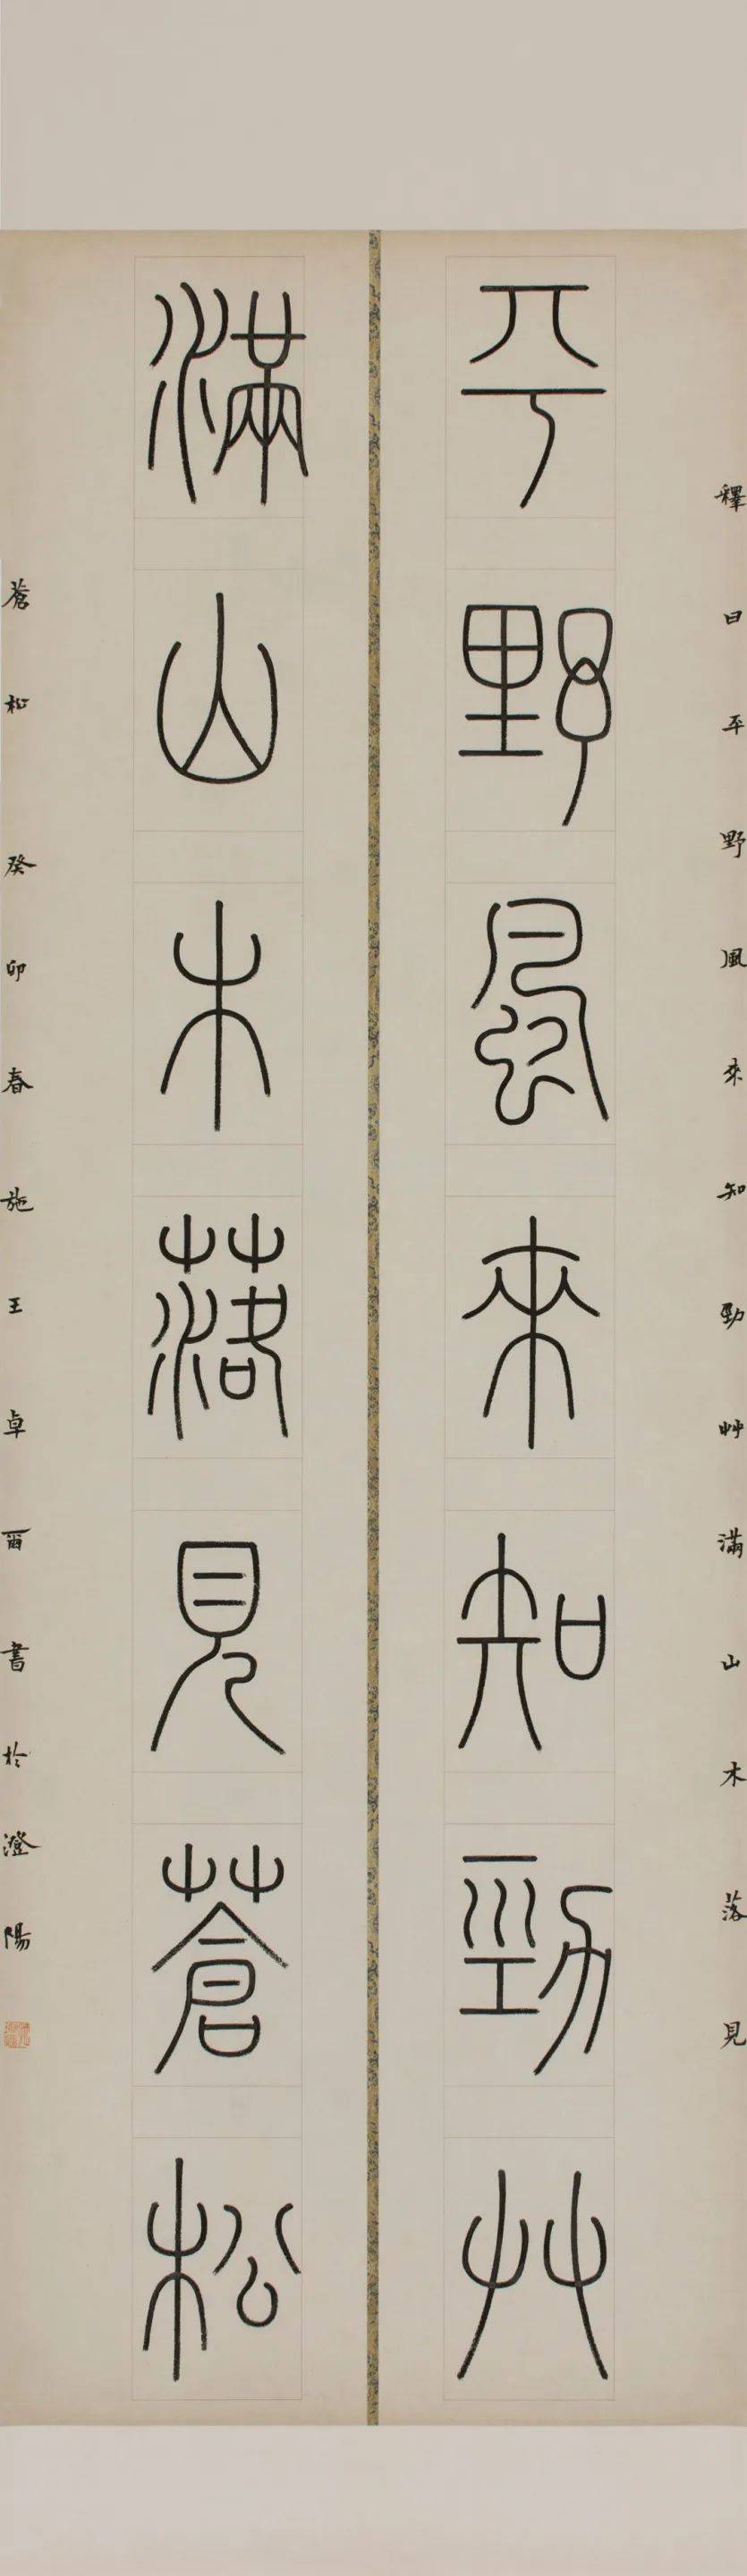 釋曰平野風來知勁艸滿山木落見
平野風來知勁艸
滿山木落見蒼松
蒼松 癸卯春施王卓爾書於澄陽